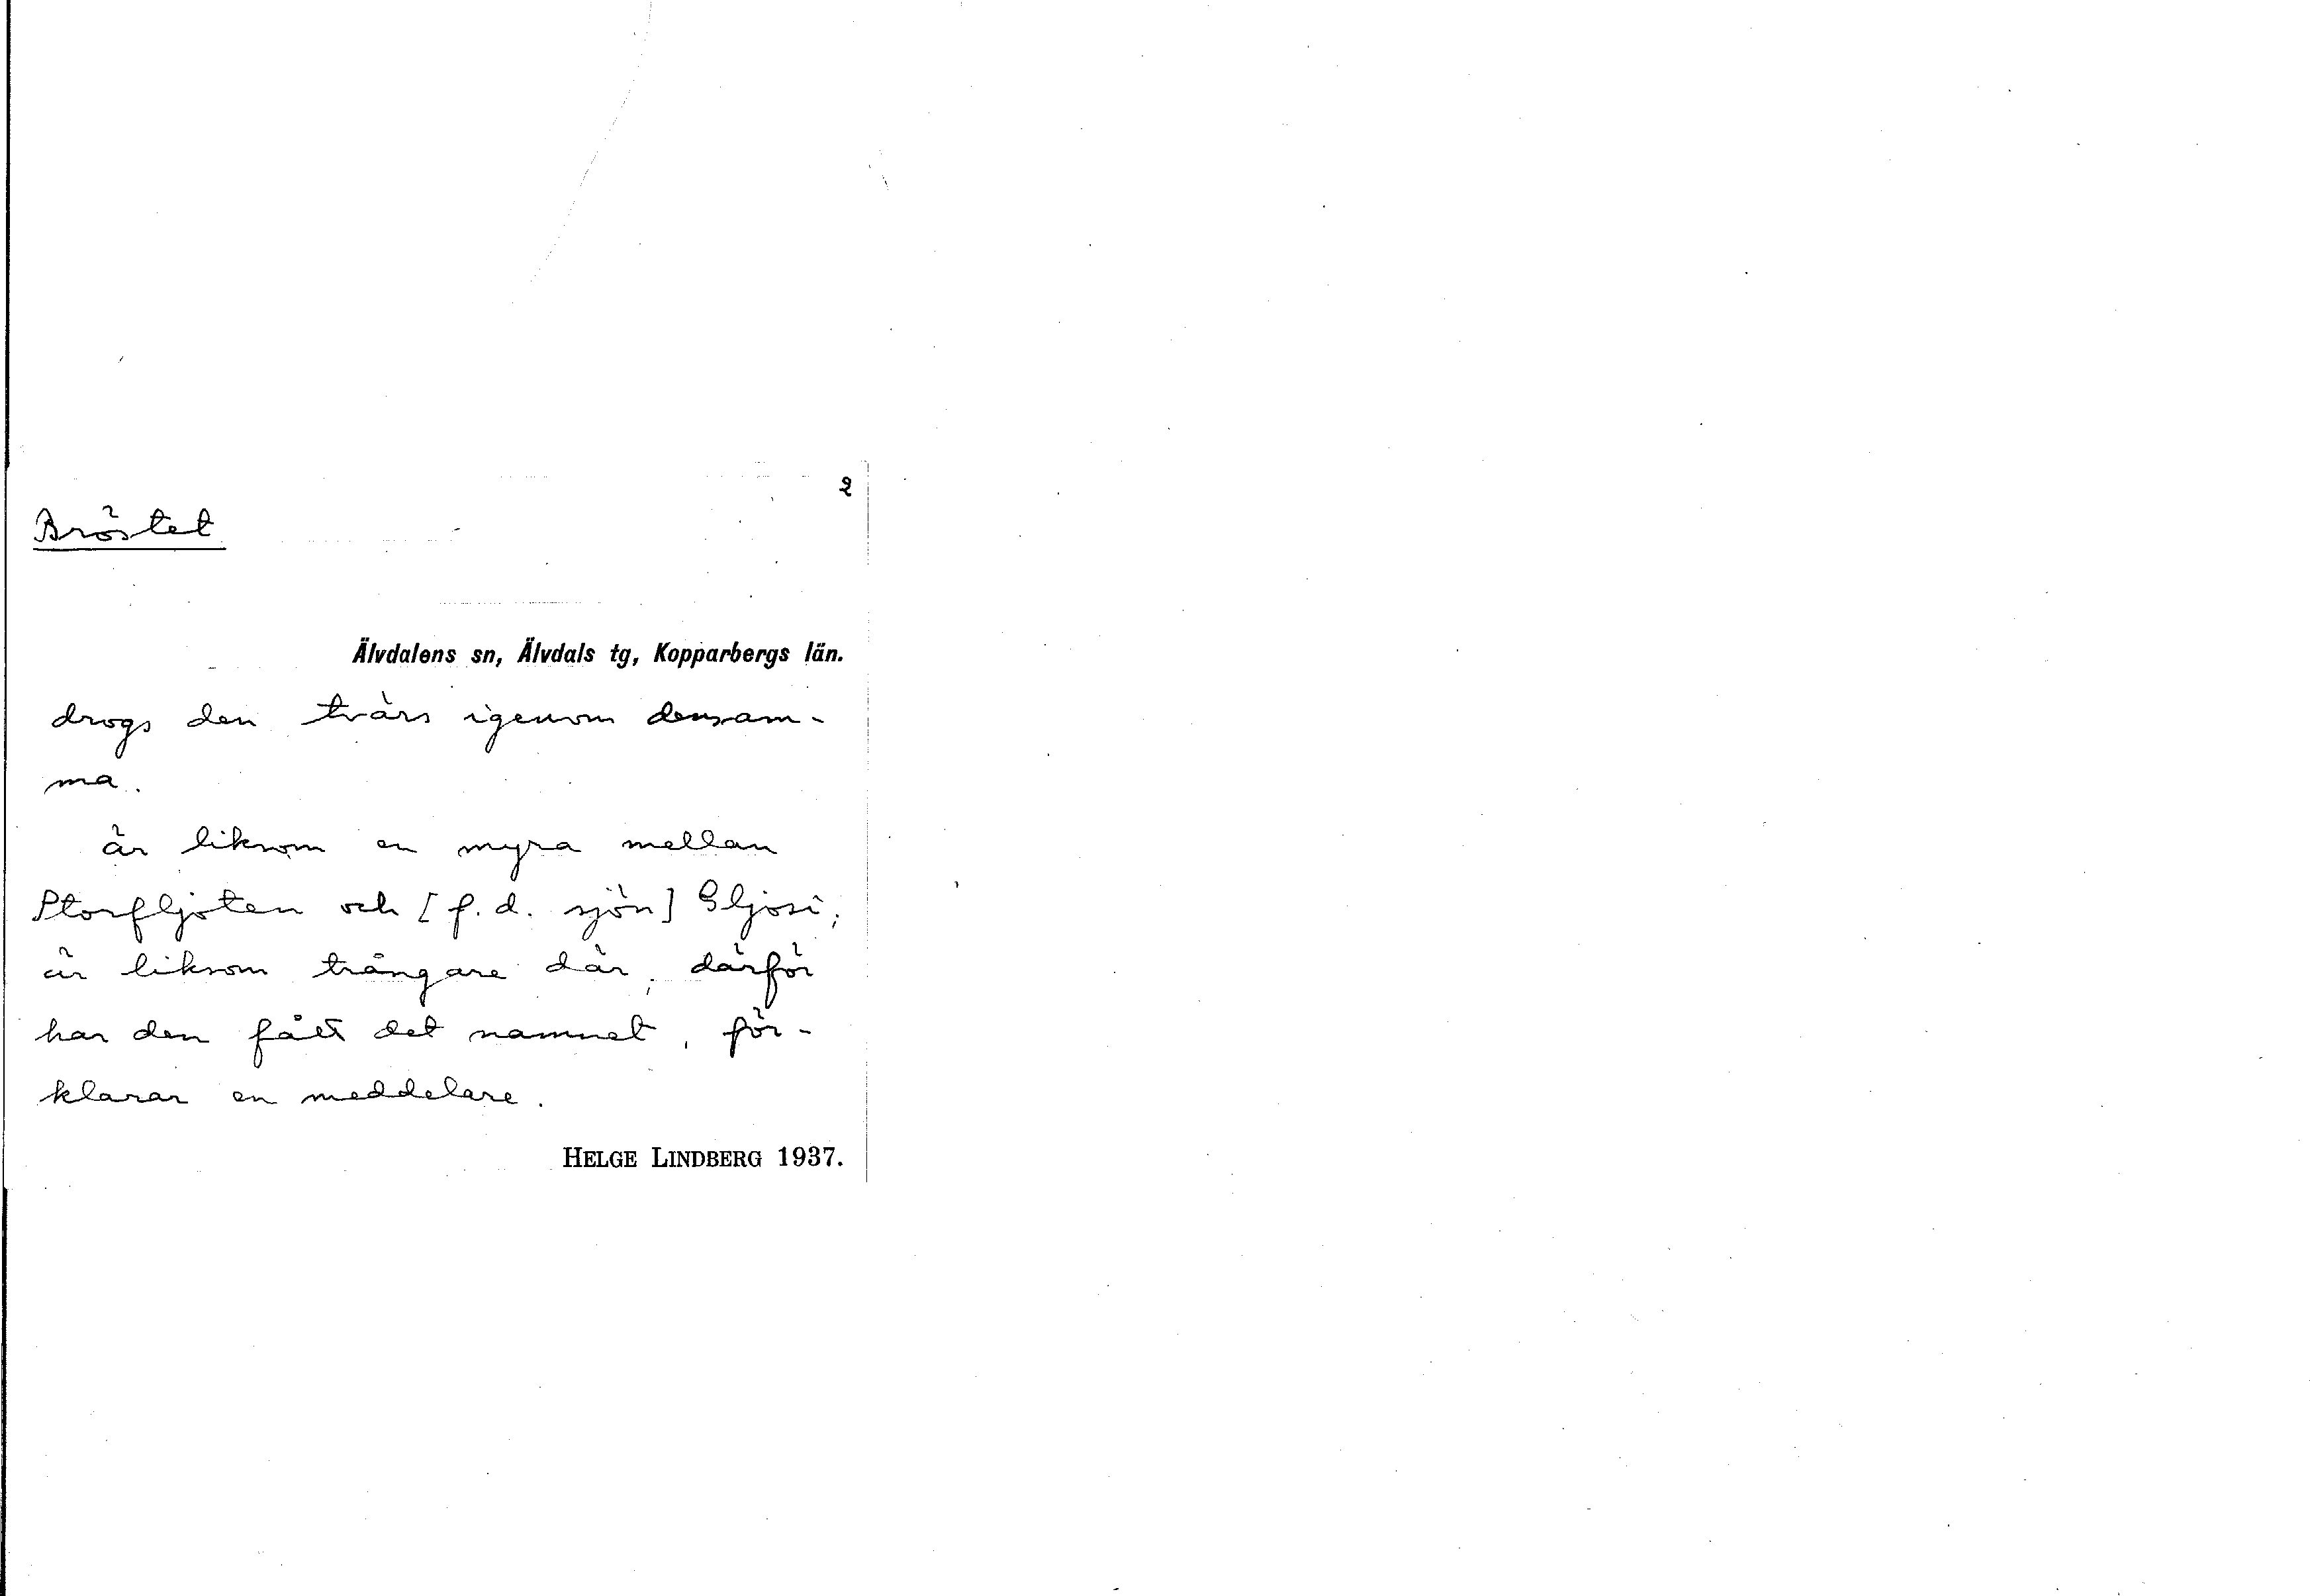 2
Bröstet
Älvdalens sn, Älvdals tg, Kopparbergs län.
drogs den tvärs igenom densam-
ma.
är liksom en myra mellan
Storfljoten och [f.d. sjön] Gljosi;
är liksom trångare där, därför
har den fått det namnet, för-
klarar en meddelare.
HELGE LINDBERG 1937.